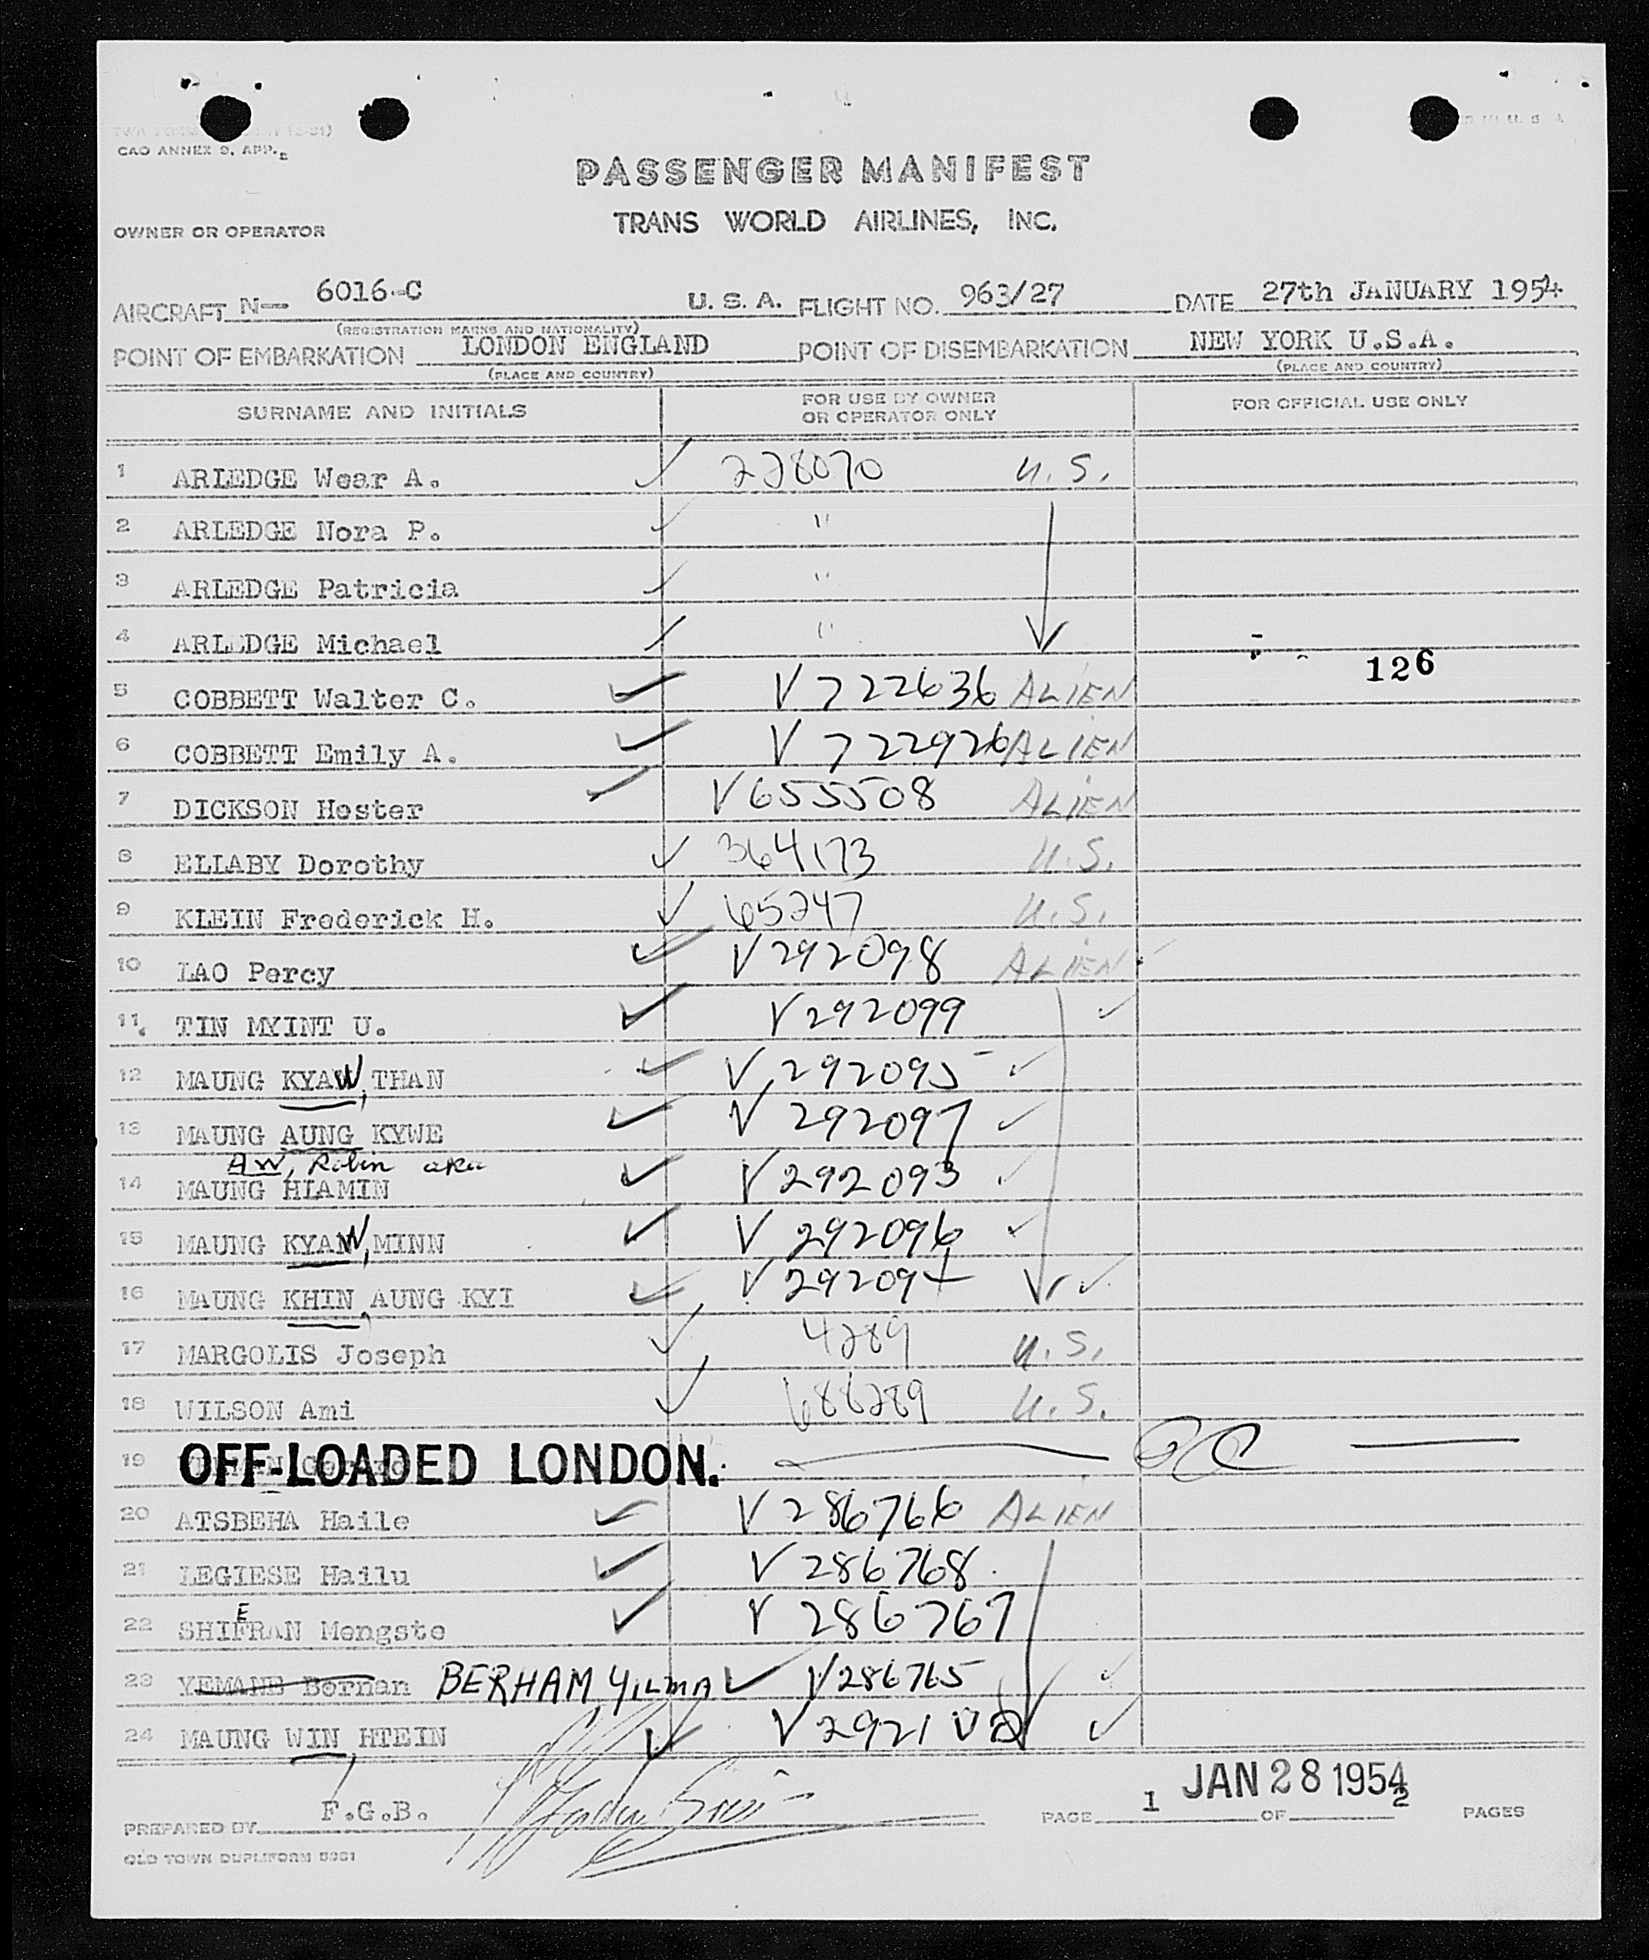 CAO ANNEX 9, APP.
PASSENGER MANIFEST
TRANS WORLD AIRLINES, INC.
OWNER OR OPERATOR
AIRCRAFT N— 6016-C U. S. A. FLIGHT NO. 963/27 DATE 27th JANUARY 1954
(REGISTRATION MARKS AND NATIONALITY)
POINT OF EMBARKATION LONDON ENGLAND POINT OF DISEMBARKATION NEW YORK U.S.A.
(PLACE AND COUNTRY) (PLACE AND COUNTRY)
SURNAME AND INITIALS FOR USE BY OWNER OR OPERATOR ONLY FOR OFFICIAL USE ONLY
1 ARLEDGE Wear A. ✓ 228070 U.S.
2 ARLEDGE Nora P. ✓ "
3 ARLEDGE Patricia ✓ "
4 ARLEDGE Michael ✓ "
126
5 COBBETT Walter C. ✓ V722636 ALIEN
6 COBBETT Emily A. ✓ V722926 ALIEN
7 DICKSON Hester ✓ V655508 ALIEN
8 ELLABY Dorothy ✓ 364173 U.S.
9 KLEIN Frederick H. ✓ 65247 U.S.
10 LAO Percy ✓ V292098 ALIEN ✓
11. TIN MYINT U. ✓ V292099 ✓
12 MAUNG KYAW, THAN ✓ V292095 ✓
13 MAUNG AUNG KYWE ✓ V292097 ✓
AW, Robin aka
14 MAUNG HIAMIN ✓ V292093 ✓
15 MAUNG KYAW, MINN ✓ V292096 ✓
16 MAUNG KHIN, AUNG KYI ✓ V292094 ✓
17 MARGOLIS Joseph ✓ 4289 U.S.
18 WILSON Ami ✓ 686289 U.S.
19 OFF-LOADED LONDON.
20 ATSBEHA Haile ✓ V286766 ALIEN
21 LEGIESE Hailu ✓ V286768
E
22 SHIFRAN Mengste ✓ V286767
23 YEMANE Bernan BERHAM, YILMA ✓ V286765 ✓
24 MAUNG WIN, HTEIN ✓ V292102 ✓
JAN 28 1954
PREPARED BY F.G.B. PAGE 1 OF 2 PAGES
OLD TOWN DUPLIFORM 5951